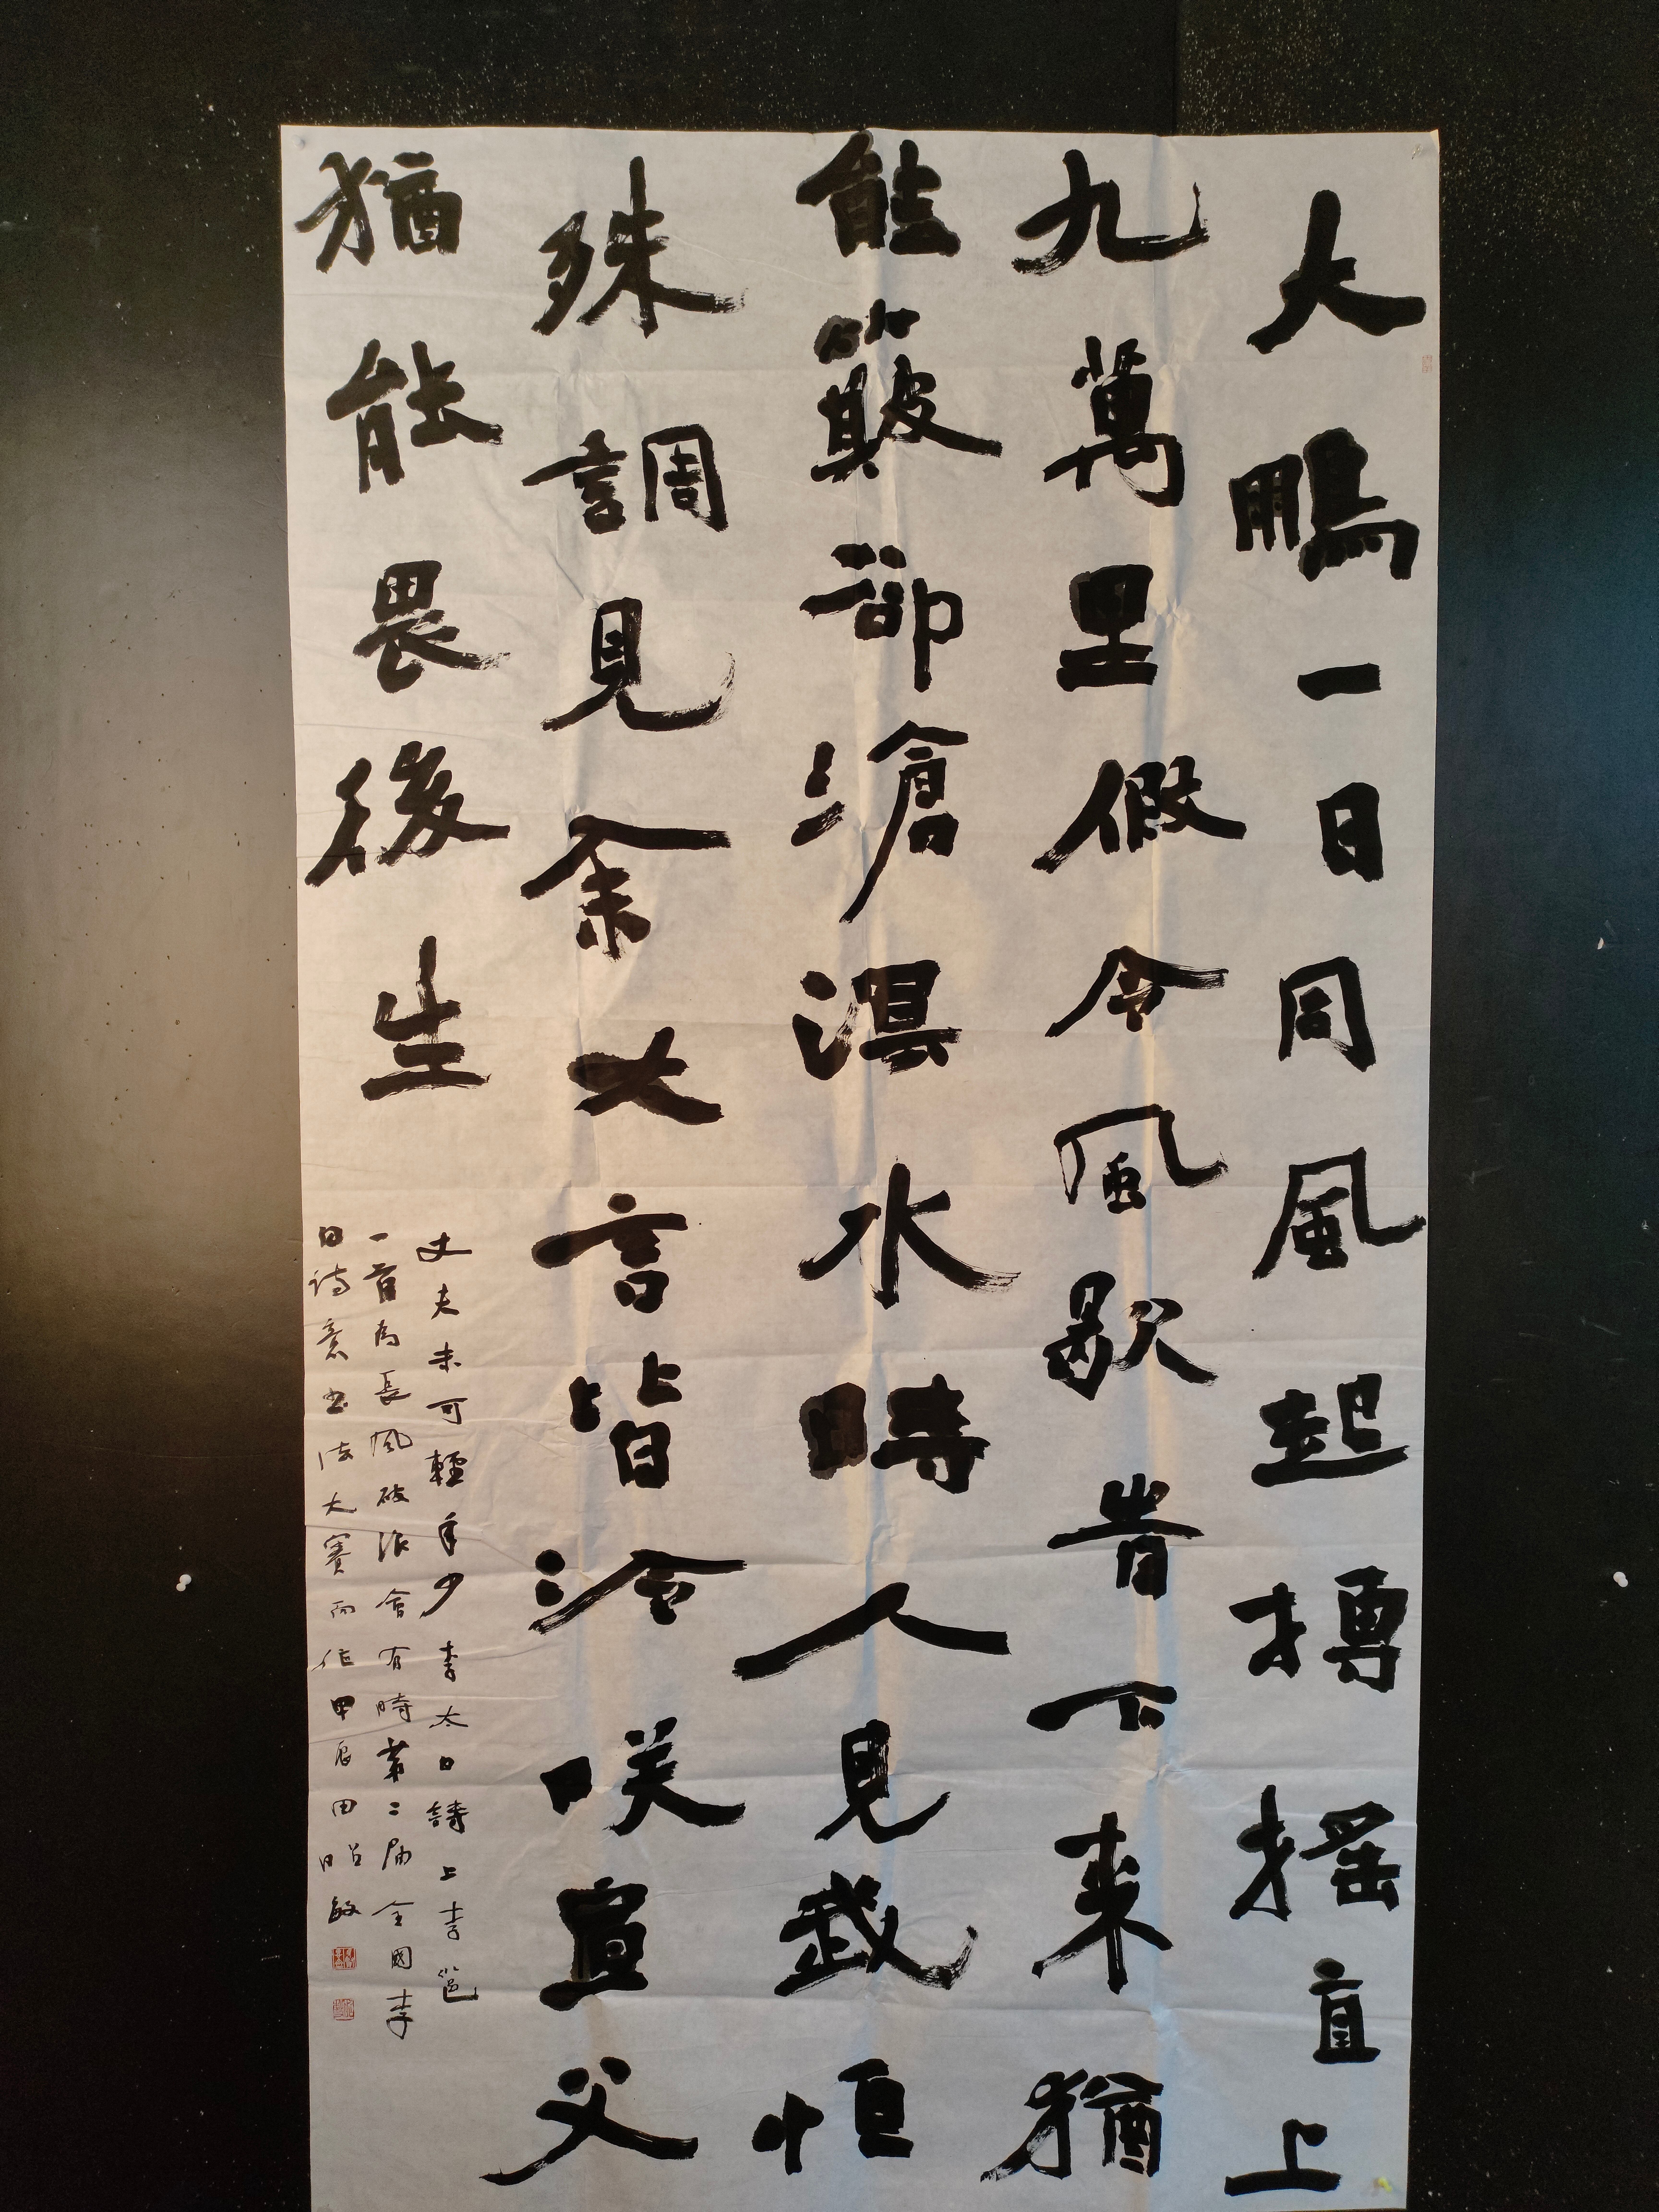 大鵬一日同風起摶搖直上
九萬里假令風歇昔下来猶
能簸卻滄溟水時人見我恒
殊調見余大言皆冷咲宣父
猶能畏後生
丈夫未可輕年少李太白詩上李邕
一首為長風破浪會有時第二届全國李
白詩意书法大賽而作甲辰田昭敏